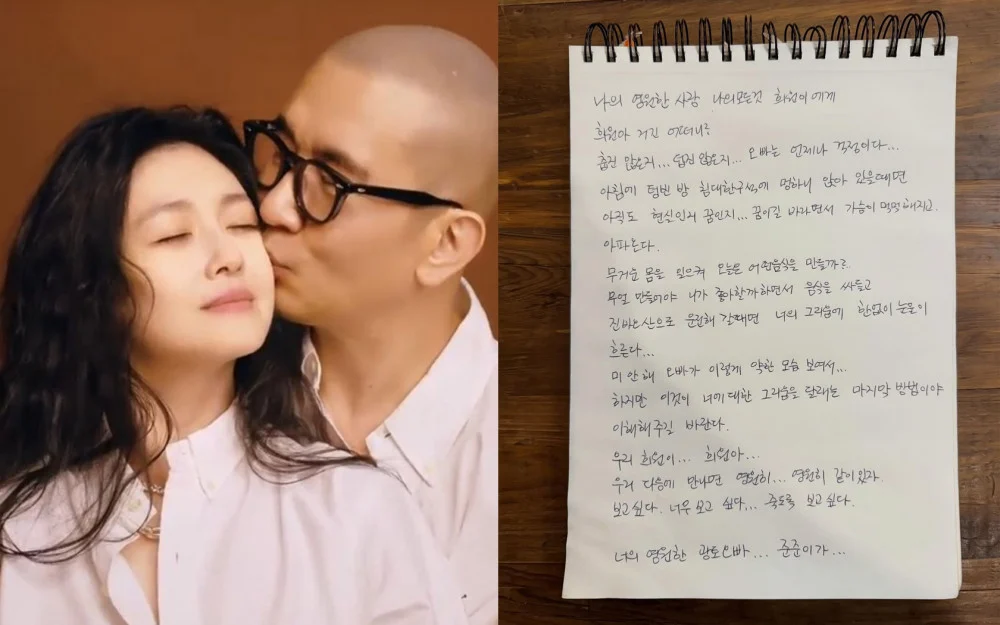 나의 영원한 사랑 나의 모든것 희원이에게
희원아 거긴 어떠니?
춥진 않은지... 덥진 않은지... 오빠는 언제나 걱정이다...
아침에 텅빈 방 침대한구석에 멍하니 앉아 있을때면
아직도 현실인지 꿈인지... 꿈이길 바라면서 가슴이 먹먹해지고.
아파온다.
무거운 몸을 일으켜 오늘은 어떤음식을 만들까?
무얼 만들어야 니가 좋아할까하면서 음식을 싸들고
진바오산으로 운전해 갈때면 너의 그리움에 한없이 눈물이
흐른다...
미안해 오빠가 이렇게 약한 모습 보여서...
하지만 이것이 너에대한 그리움을 달래는 마지막 방법이야
이해해주길 바란다.
우리 희원이... 희원아...
우리 다음에 만나면 영원히... 영원히 같이있자.
보고싶다. 너무 보고 싶다... 죽도록 보고싶다.
너의 영원한 광토오빠... 준준이가...